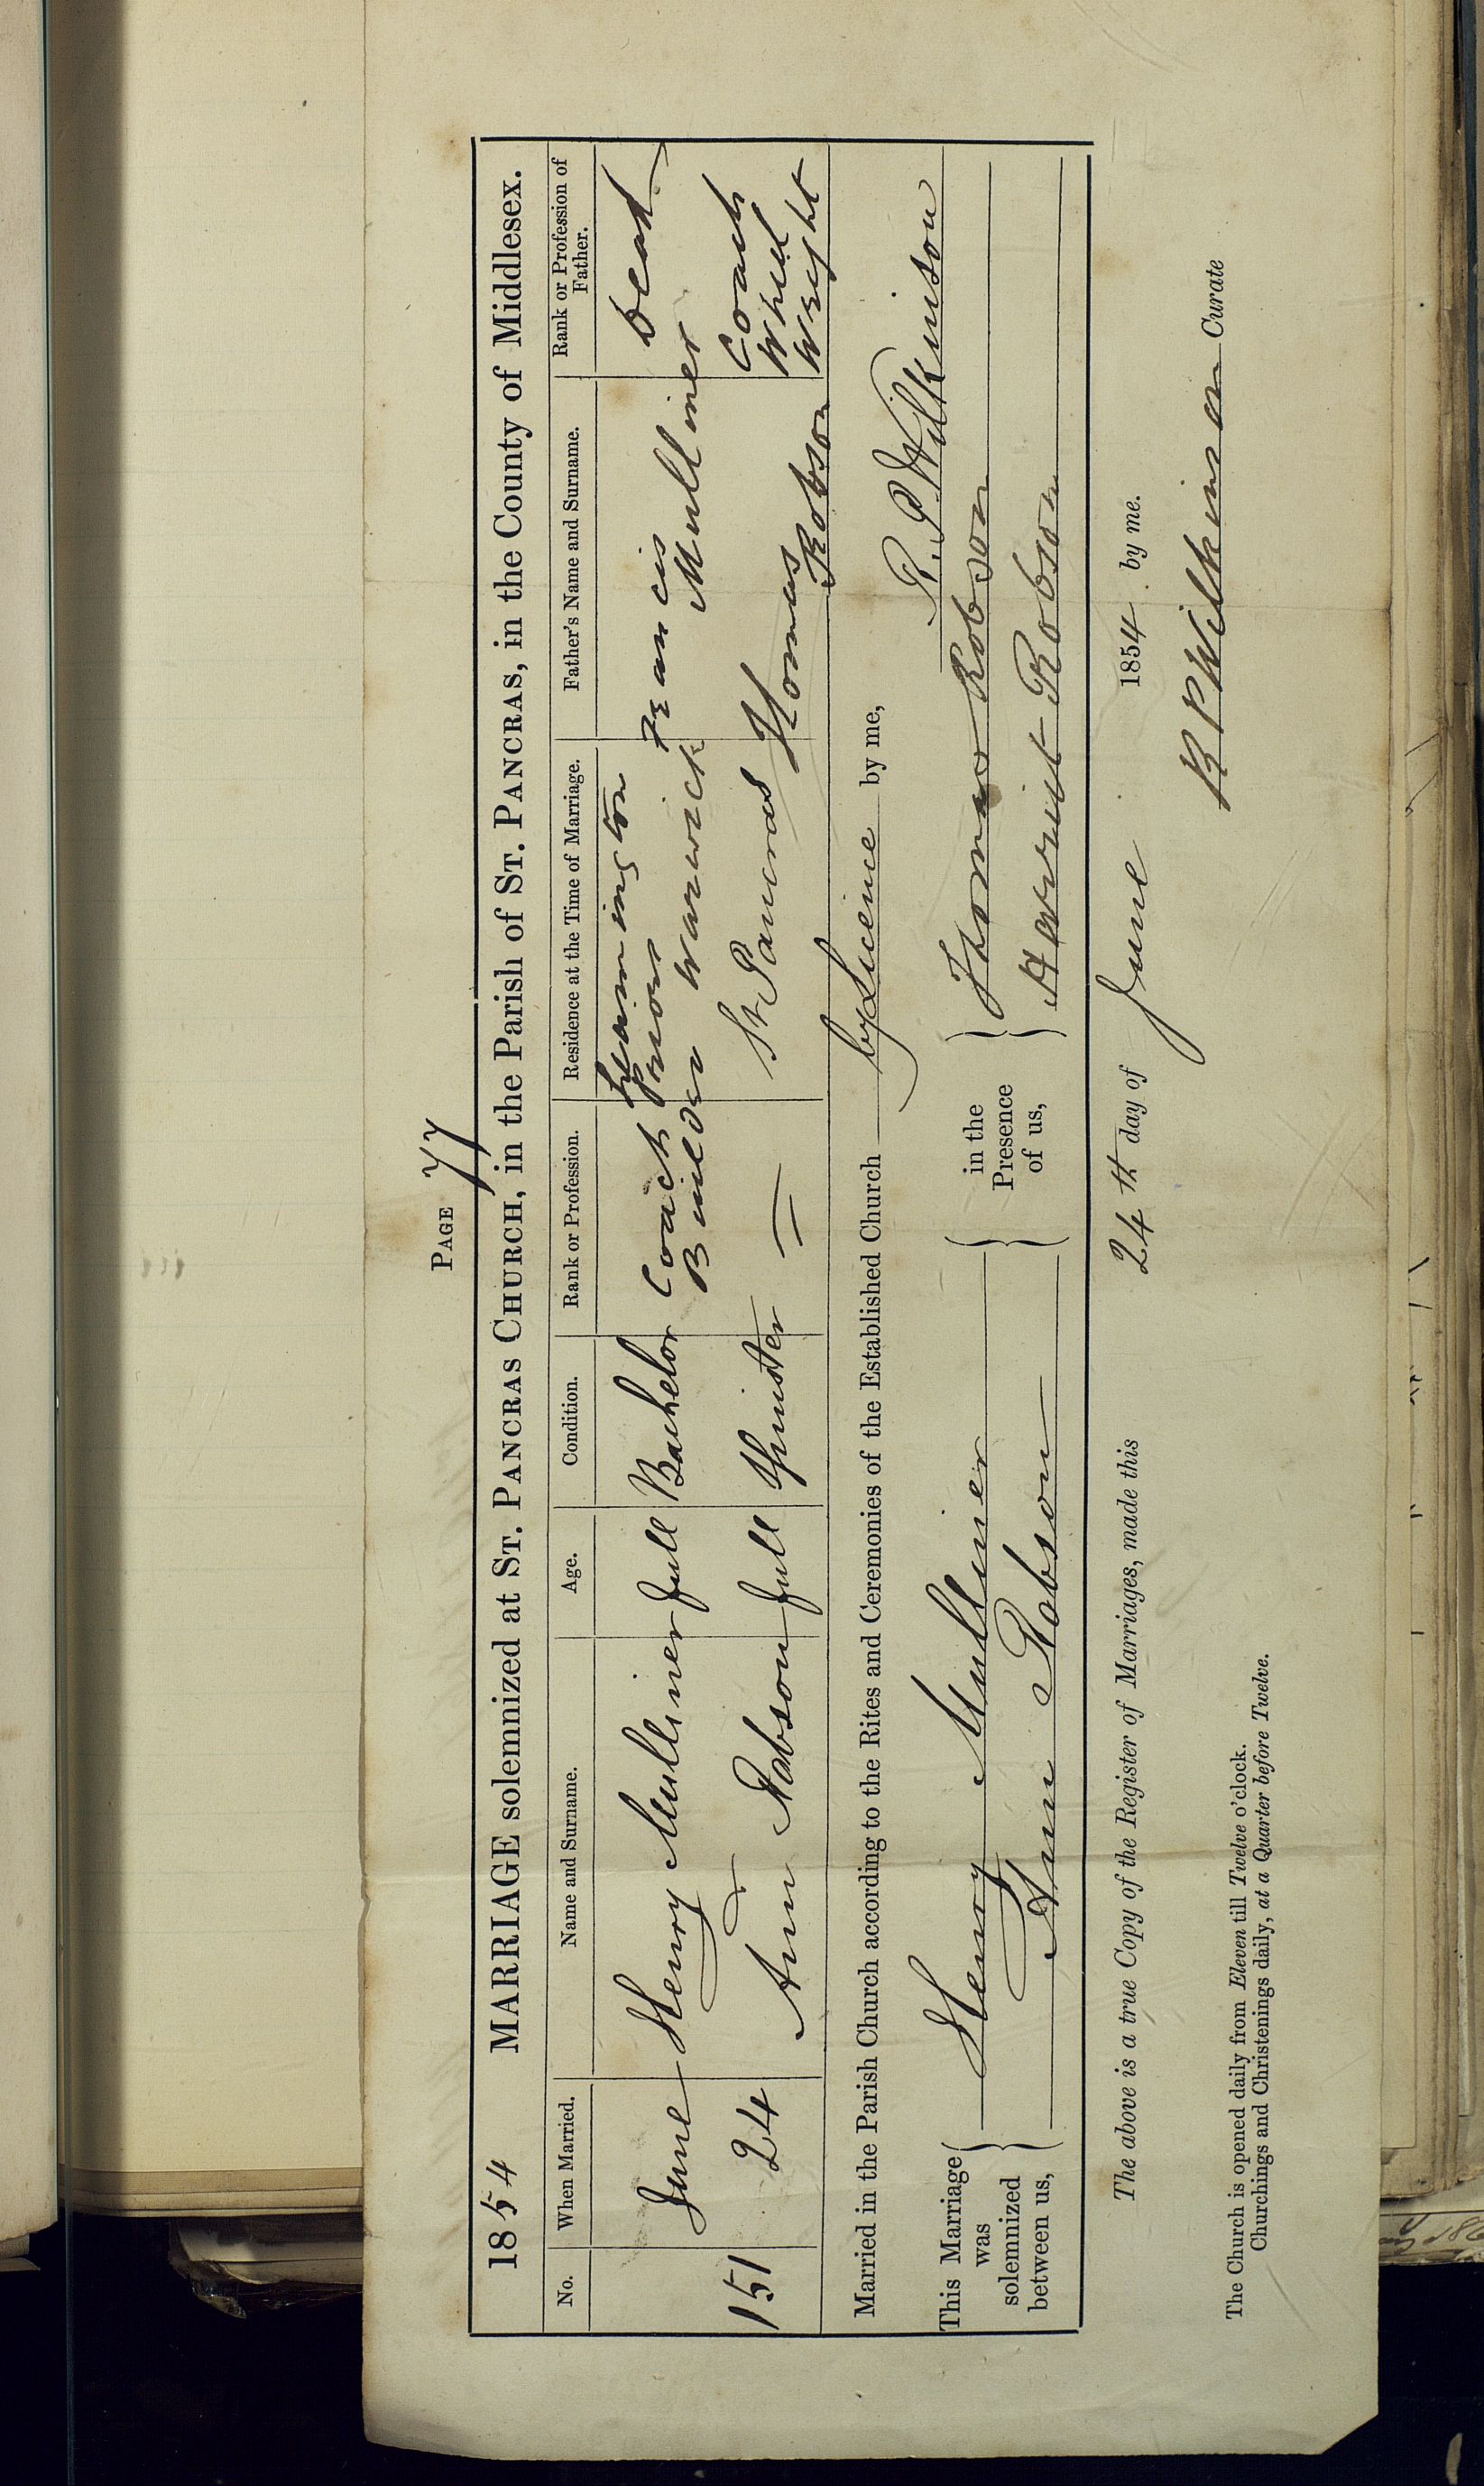 PAGE 77
1854 MARRIAGE solemnized at ST. PANCRAS CHURCH, in the Parish of ST. PANCRAS, in the County of Middlesex.
No. When Married. Name and Surname. Age. Condition. Rank or Profession. Residence at the Time of Marriage. Father's Name and Surname. Rank or Profession of Father.
151
June
24
Henry Mulliner
full
Bachelor
Coach
Builder
Leamington
Priors
Warwick
Francis
Mulliner
Dead
Ann Robson
full
Spinster
—
St Pancras
Thomas
Robson
Coach
Wheel
Wright
Married in the Parish Church according to the Rites and Ceremonies of the Established Church by Licence by me,
R. P. Wilkinson
This Marriage
was
solemnized
between us,
Henry Mulliner
Ann Robson
in the
Presence
of us,
Thomas Robson
Harriet Robson
The above is a true Copy of the Register of Marriages, made this 24th day of June 1854 by me.
R P Wilkinson Curate
The Church is opened daily from Eleven till Twelve o'clock.
Churchings and Christenings daily, at a Quarter before Twelve.